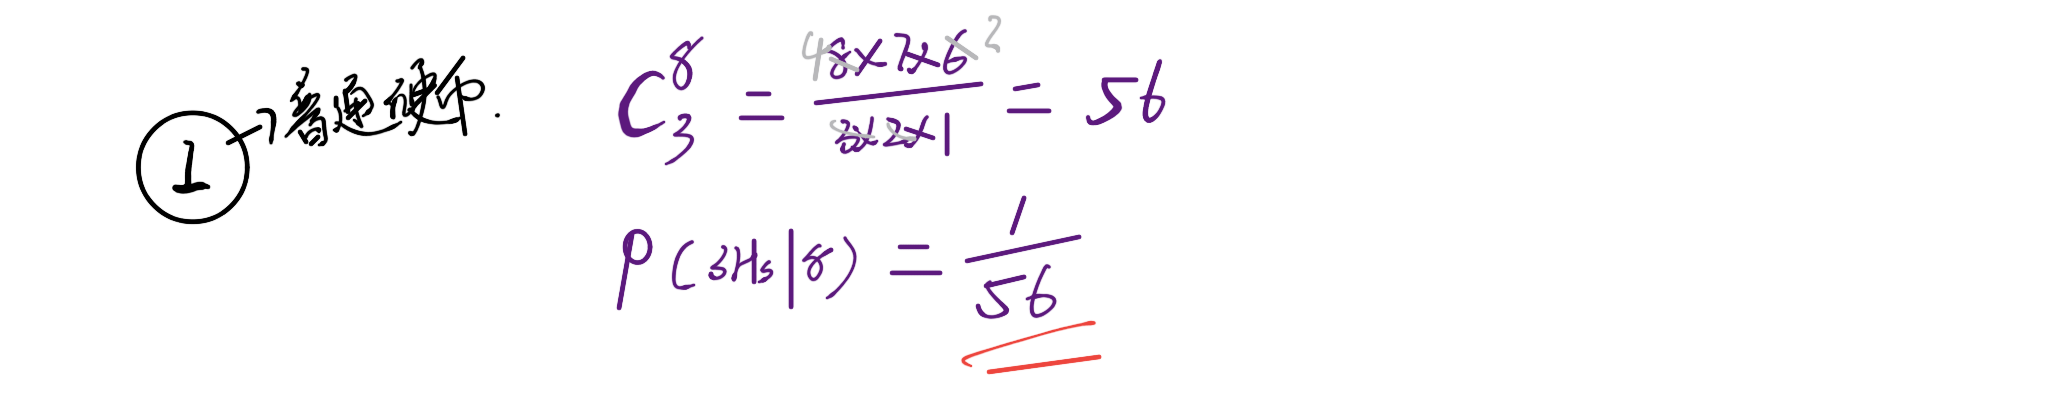 ① 普通硬币.
C₃⁸ = ⁴8×7×6² / 3×2×1 = 56
P(3Hs|8) = 1/56